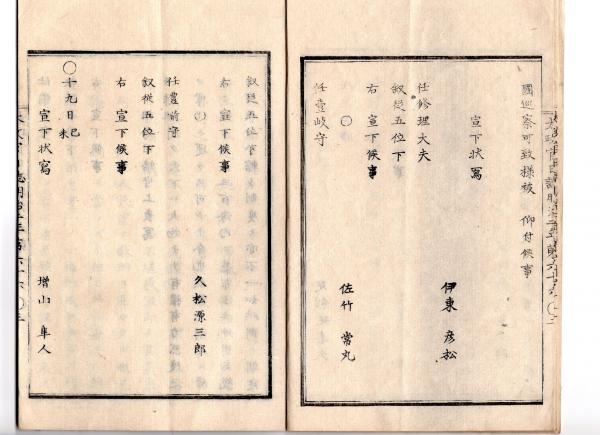 國巡察可致様被 仰付候事
宣下状寫
伊東 彦松
任修理大夫
叙従五位下
右 宣下候事
〇 佐竹 常丸
任壹岐守
叙従五位下
右 宣下候事
〇 久松源三郎
任豊前守
叙従五位下
右 宣下候事
〇十九日己未
宣下状寫
増山 隼人